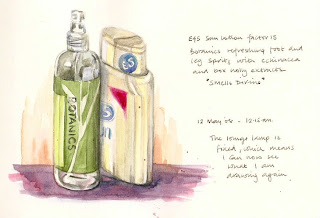 E45 Sun Lotion factor 15
Botanics refreshing foot and
leg spritz with echinacea
and box holly extracts.
"Smells Divine"
12 May 06 - 12:12am
The lounge lamp is
fixed, which means
I can now see
what I am
drawing again.
BOTANICS